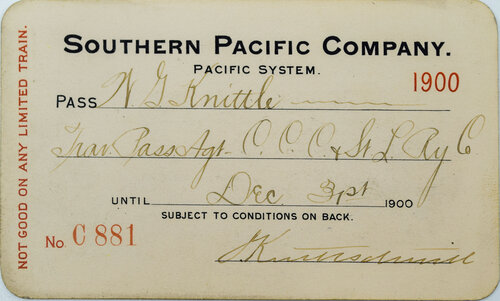 SOUTHERN PACIFIC COMPANY.
PACIFIC SYSTEM.
1900
PASS W. G. Knittle
Trav. Pass Agt. C. C. C. & St. L. Ry Co
UNTIL Dec. 31st 1900
SUBJECT TO CONDITIONS ON BACK.
No. C 881
NOT GOOD ON ANY LIMITED TRAIN.